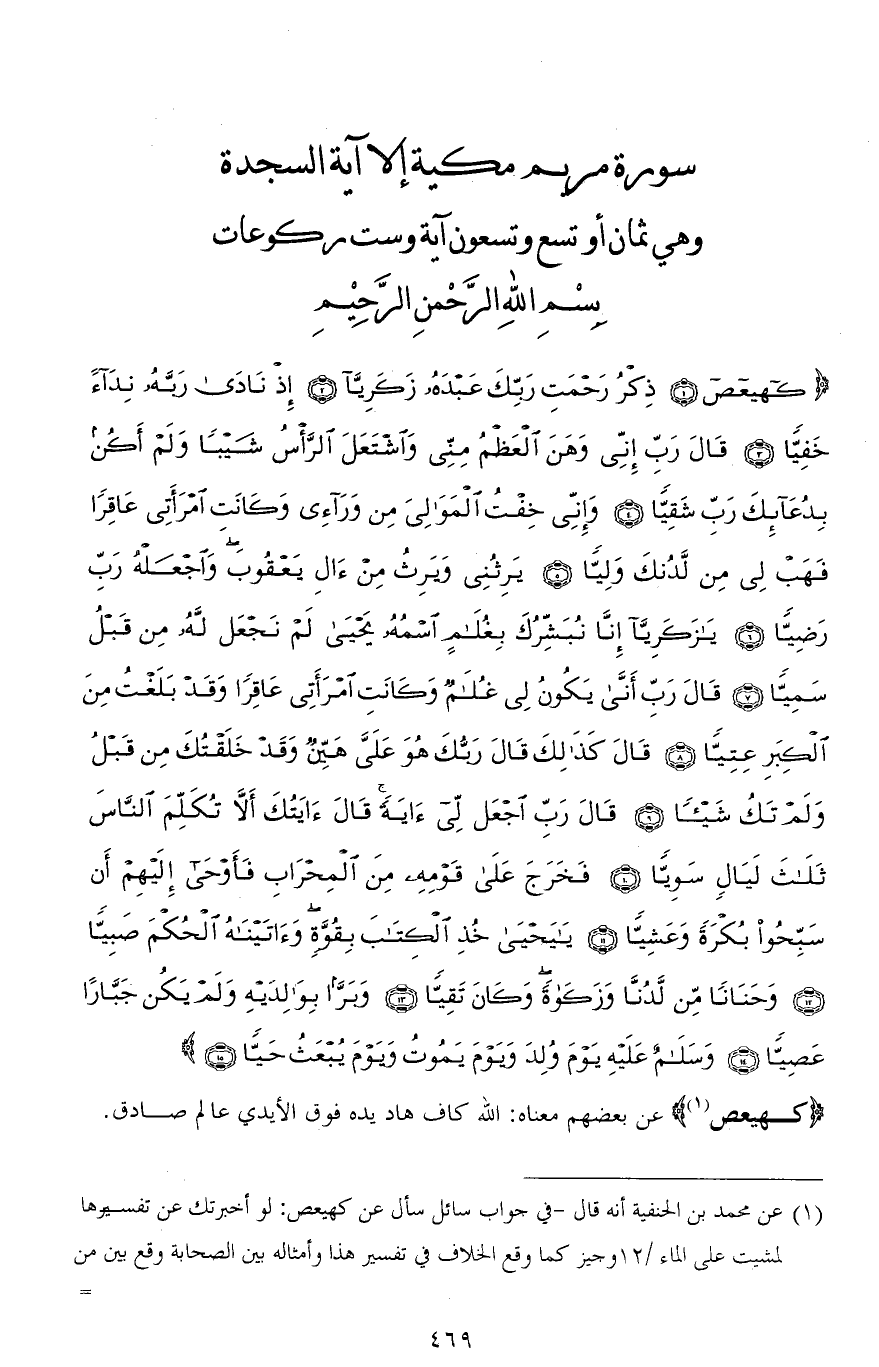 سورة مريم مكية إلا آية السجدة
وهي ثمان أو تسع وتسعون آية وست ركوعات
بِسْمِ اللهِ الرَّحْمنِ الرَّحِيْمِ
﴿ كٓهيعٓصٓ ۝١ ذِكْرُ رَحْمَتِ رَبِّكَ عَبْدَهُۥ زَكَرِيَّآ ۝٢ إِذْ نَادَىٰ رَبَّهُۥ نِدَآءً
خَفِيًّا ۝٣ قَالَ رَبِّ إِنِّى وَهَنَ ٱلْعَظْمُ مِنِّى وَٱشْتَعَلَ ٱلرَّأْسُ شَيْبًا وَلَمْ أَكُنۢ
بِدُعَآئِكَ رَبِّ شَقِيًّا ۝٤ وَإِنِّى خِفْتُ ٱلْمَوَٰلِىَ مِن وَرَآءِى وَكَانَتِ ٱمْرَأَتِى عَاقِرًا
فَهَبْ لِى مِن لَّدُنكَ وَلِيًّا ۝٥ يَرِثُنِى وَيَرِثُ مِنْ ءَالِ يَعْقُوبَ ۖ وَٱجْعَلْهُ رَبِّ
رَضِيًّا ۝٦ يَـٰزَكَرِيَّآ إِنَّا نُبَشِّرُكَ بِغُلَـٰمٍ ٱسْمُهُۥ يَحْيَىٰ لَمْ نَجْعَل لَّهُۥ مِن قَبْلُ
سَمِيًّا ۝٧ قَالَ رَبِّ أَنَّىٰ يَكُونُ لِى غُلَـٰمٌ وَكَانَتِ ٱمْرَأَتِى عَاقِرًا وَقَدْ بَلَغْتُ مِنَ
ٱلْكِبَرِ عِتِيًّا ۝٨ قَالَ كَذَٰلِكَ قَالَ رَبُّكَ هُوَ عَلَىَّ هَيِّنٌ وَقَدْ خَلَقْتُكَ مِن قَبْلُ
وَلَمْ تَكُ شَيْـًٔا ۝٩ قَالَ رَبِّ ٱجْعَل لِّىٓ ءَايَةً ۚ قَالَ ءَايَتُكَ أَلَّا تُكَلِّمَ ٱلنَّاسَ
ثَلَـٰثَ لَيَالٍ سَوِيًّا ۝١٠ فَخَرَجَ عَلَىٰ قَوْمِهِۦ مِنَ ٱلْمِحْرَابِ فَأَوْحَىٰٓ إِلَيْهِمْ أَن
سَبِّحُوا۟ بُكْرَةً وَعَشِيًّا ۝١١ يَـٰيَحْيَىٰ خُذِ ٱلْكِتَـٰبَ بِقُوَّةٍ ۖ وَءَاتَيْنَـٰهُ ٱلْحُكْمَ صَبِيًّا
۝١٢ وَحَنَانًا مِّن لَّدُنَّا وَزَكَوٰةً ۖ وَكَانَ تَقِيًّا ۝١٣ وَبَرًّۢا بِوَٰلِدَيْهِ وَلَمْ يَكُن جَبَّارًا
عَصِيًّا ۝١٤ وَسَلَـٰمٌ عَلَيْهِ يَوْمَ وُلِدَ وَيَوْمَ يَمُوتُ وَيَوْمَ يُبْعَثُ حَيًّا ۝١٥ ﴾
﴿كـهيعص(١)﴾ عن بعضهم معناه: الله كاف هاد يده فوق الأيدي عالم صادق.
(١) عن محمد بن الحنفية أنه قال -في جواب سائل سأل عن كهيعص: لو أخبرتك عن تفسيرها
لمشيت على الماء /١٢وجيز كما وقع الخلاف في تفسير هذا وأمثاله بين الصحابة وقع بين من
=
٤٦٩